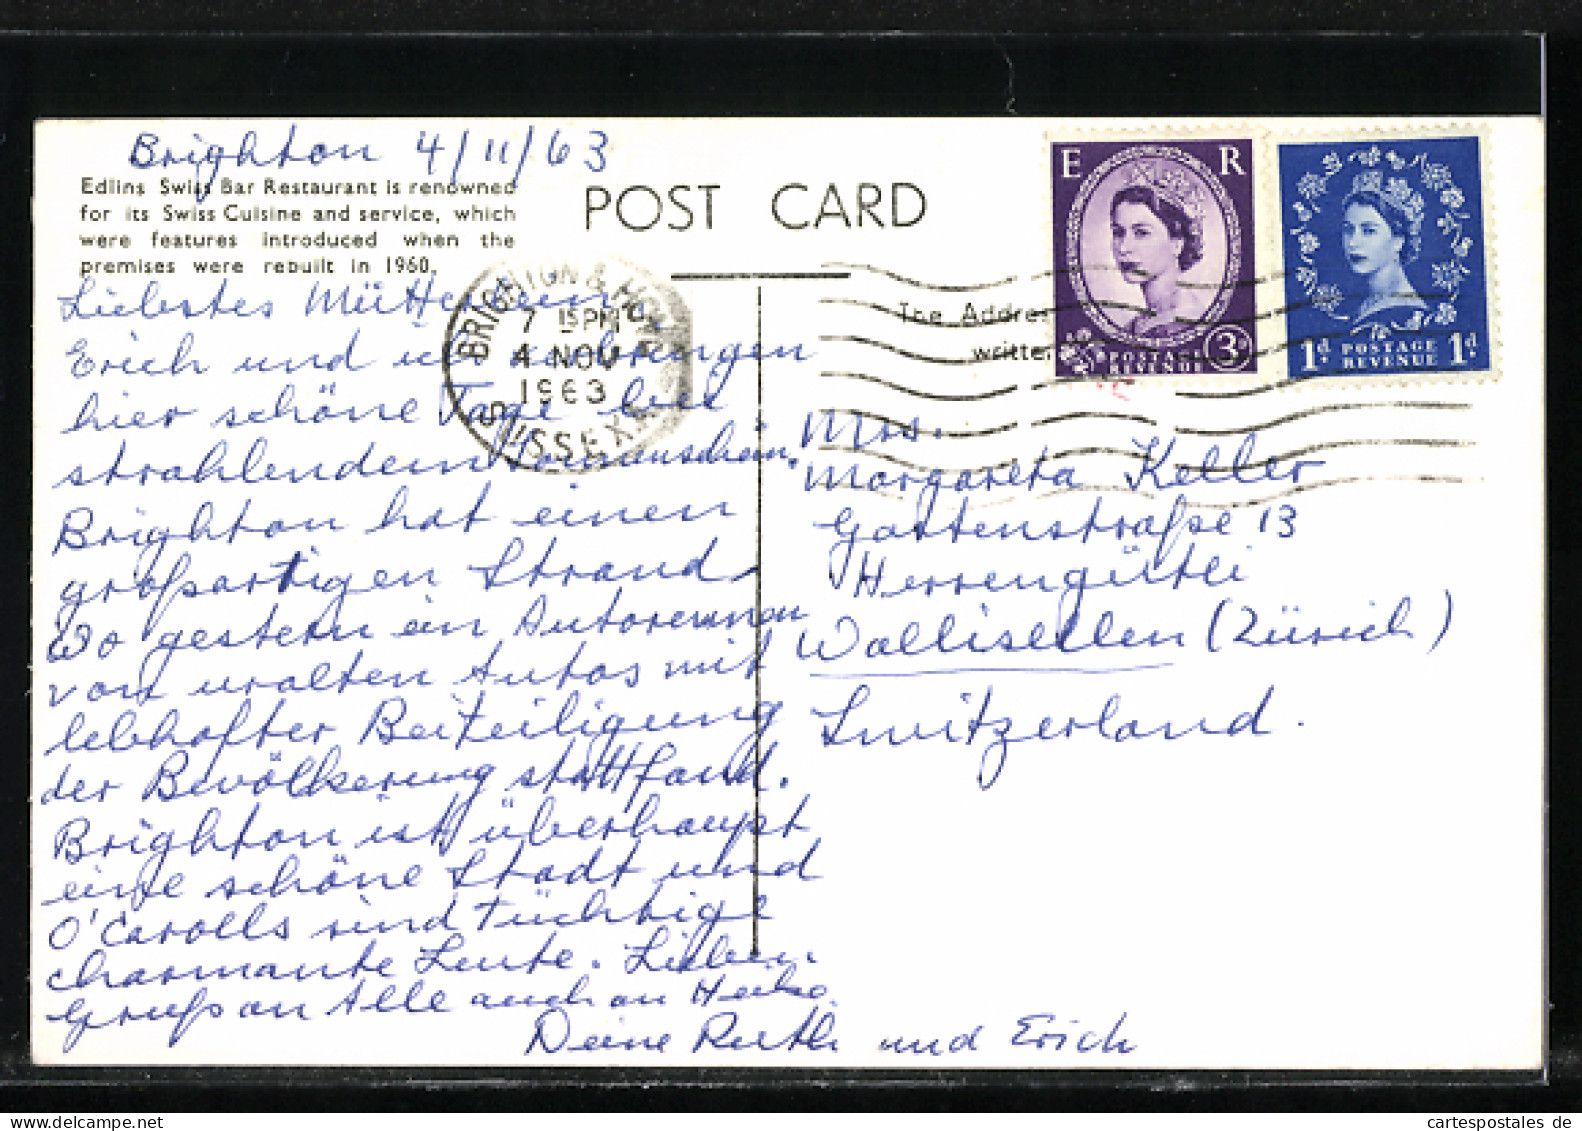 Brighton 4/11/63
Edlins Swiss Bar Restaurant is renowned
for its Swiss Cuisine and service, which
were features introduced when the
premises were rebuilt in 1960.
POST CARD
E R
POSTAGE
REVENUE
3d
1d. POSTAGE 1d.
REVENUE
BRIGHTON & HOVE
7 15 PM
4 NOV
1963
SUSSEX
The Addre
writte
Liebstes Mütterlein,
Erich und ich verbringen
hier schöne Tage bei
strahlendem Sonnenschein.
Brighton hat einen
großartigen Strand
wo gestern ein Autorennen
von uralten Autos mit
lebhafter Beiteiligung
der Bevölkerung stattfand.
Brighton ist überhaupt
eine schöne Stadt und
O'Carolls sind tüchtige
charmante Leute. Lieben
Gruß an Alle auch an
Deine Ruth und Erich
Mrs.
Margareta Keller
Gartenstraße 13
Herrengütli
Wallisellen (Zürich)
Switzerland.
cartespostales de